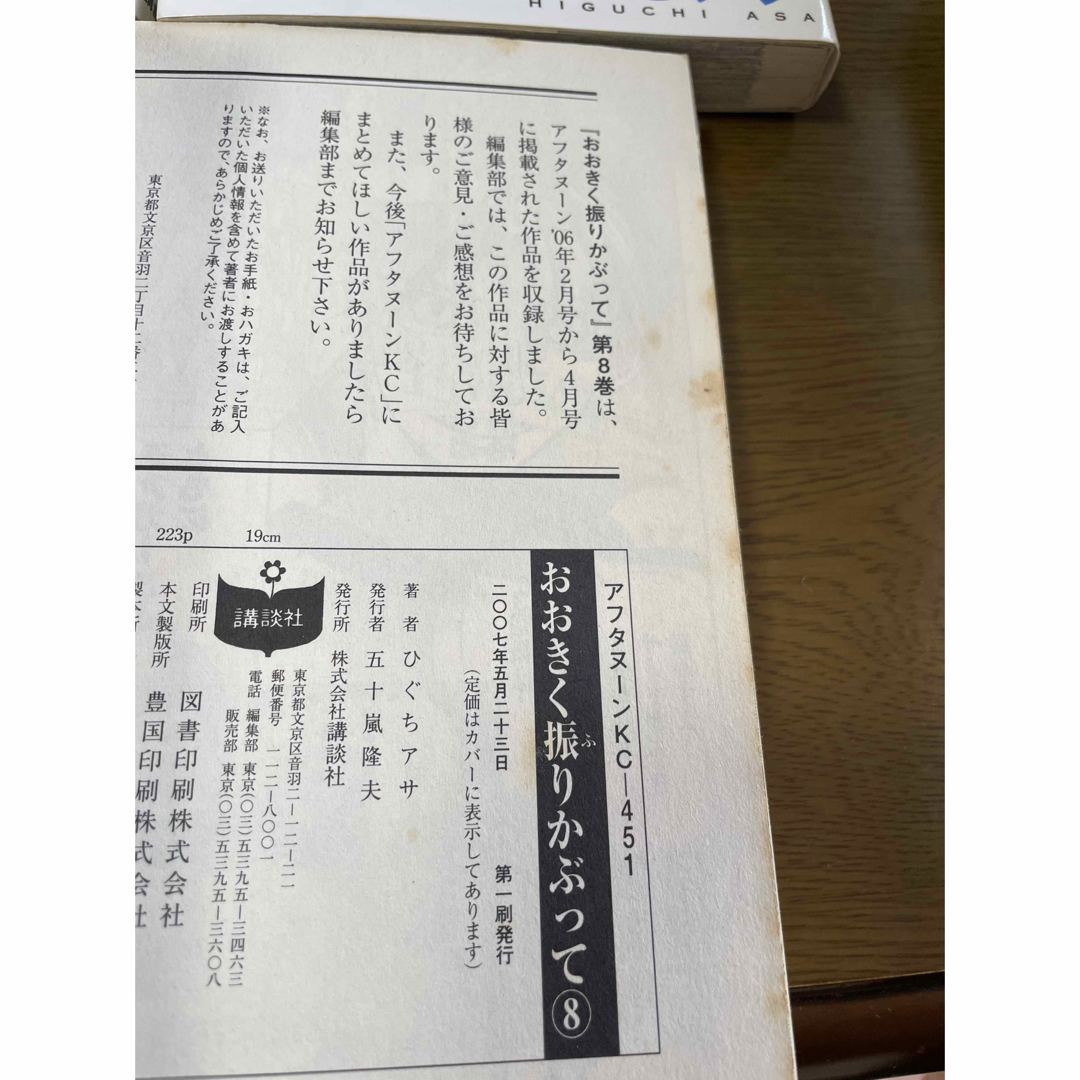 HIGUCHI ASA
『おおきく振りかぶって』第8巻は、
アフタヌーン'06年2月号から4月号
に掲載された作品を収録しました。
編集部では、この作品に対する皆
様のご意見・ご感想をお待ちしてお
ります。
また、今後「アフタヌーンKC」に
まとめてほしい作品がありましたら
編集部までお知らせ下さい。
※なお、お送りいただいたお手紙・おハガキは、ご記入
いただいた個人情報を含めて著者にお渡しすることがあ
りますので、あらかじめご了承ください。
東京都文京区音羽二丁目十二番
アフタヌーンKC—451
おおきく振りかぶって⑧
ふ
二〇〇七年五月二十三日 第一刷発行
(定価はカバーに表示してあります)
著者 ひぐちアサ
発行者 五十嵐隆夫
発行所 株式会社講談社
東京都文京区音羽二—一二—二一
郵便番号 一一二—八〇〇一
電話 編集部 東京(〇三)五三九五—三四六三
販売部 東京(〇三)五三九五—三六〇八
講談社
19cm
223p
印刷所 図書印刷株式会社
本文製版所 豊国印刷株式会社